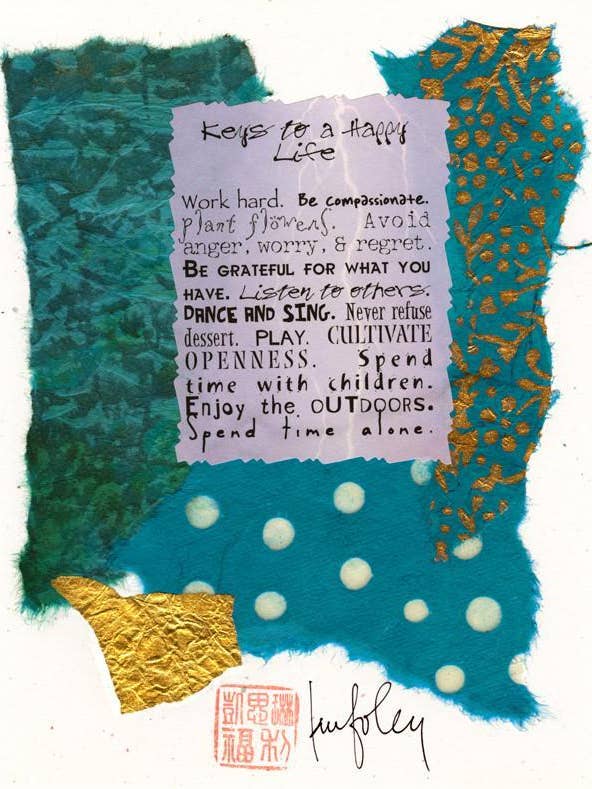 Keys to a Happy
Life
Work hard. Be compassionate.
plant flowers. Avoid
anger, worry, & regret.
BE GRATEFUL FOR WHAT YOU
HAVE. Listen to others.
DANCE AND SING. Never refuse
dessert. PLAY. CULTIVATE
OPENNESS. Spend
time with children.
Enjoy the OUTDOORS.
Spend time alone.
凱思琳
福利